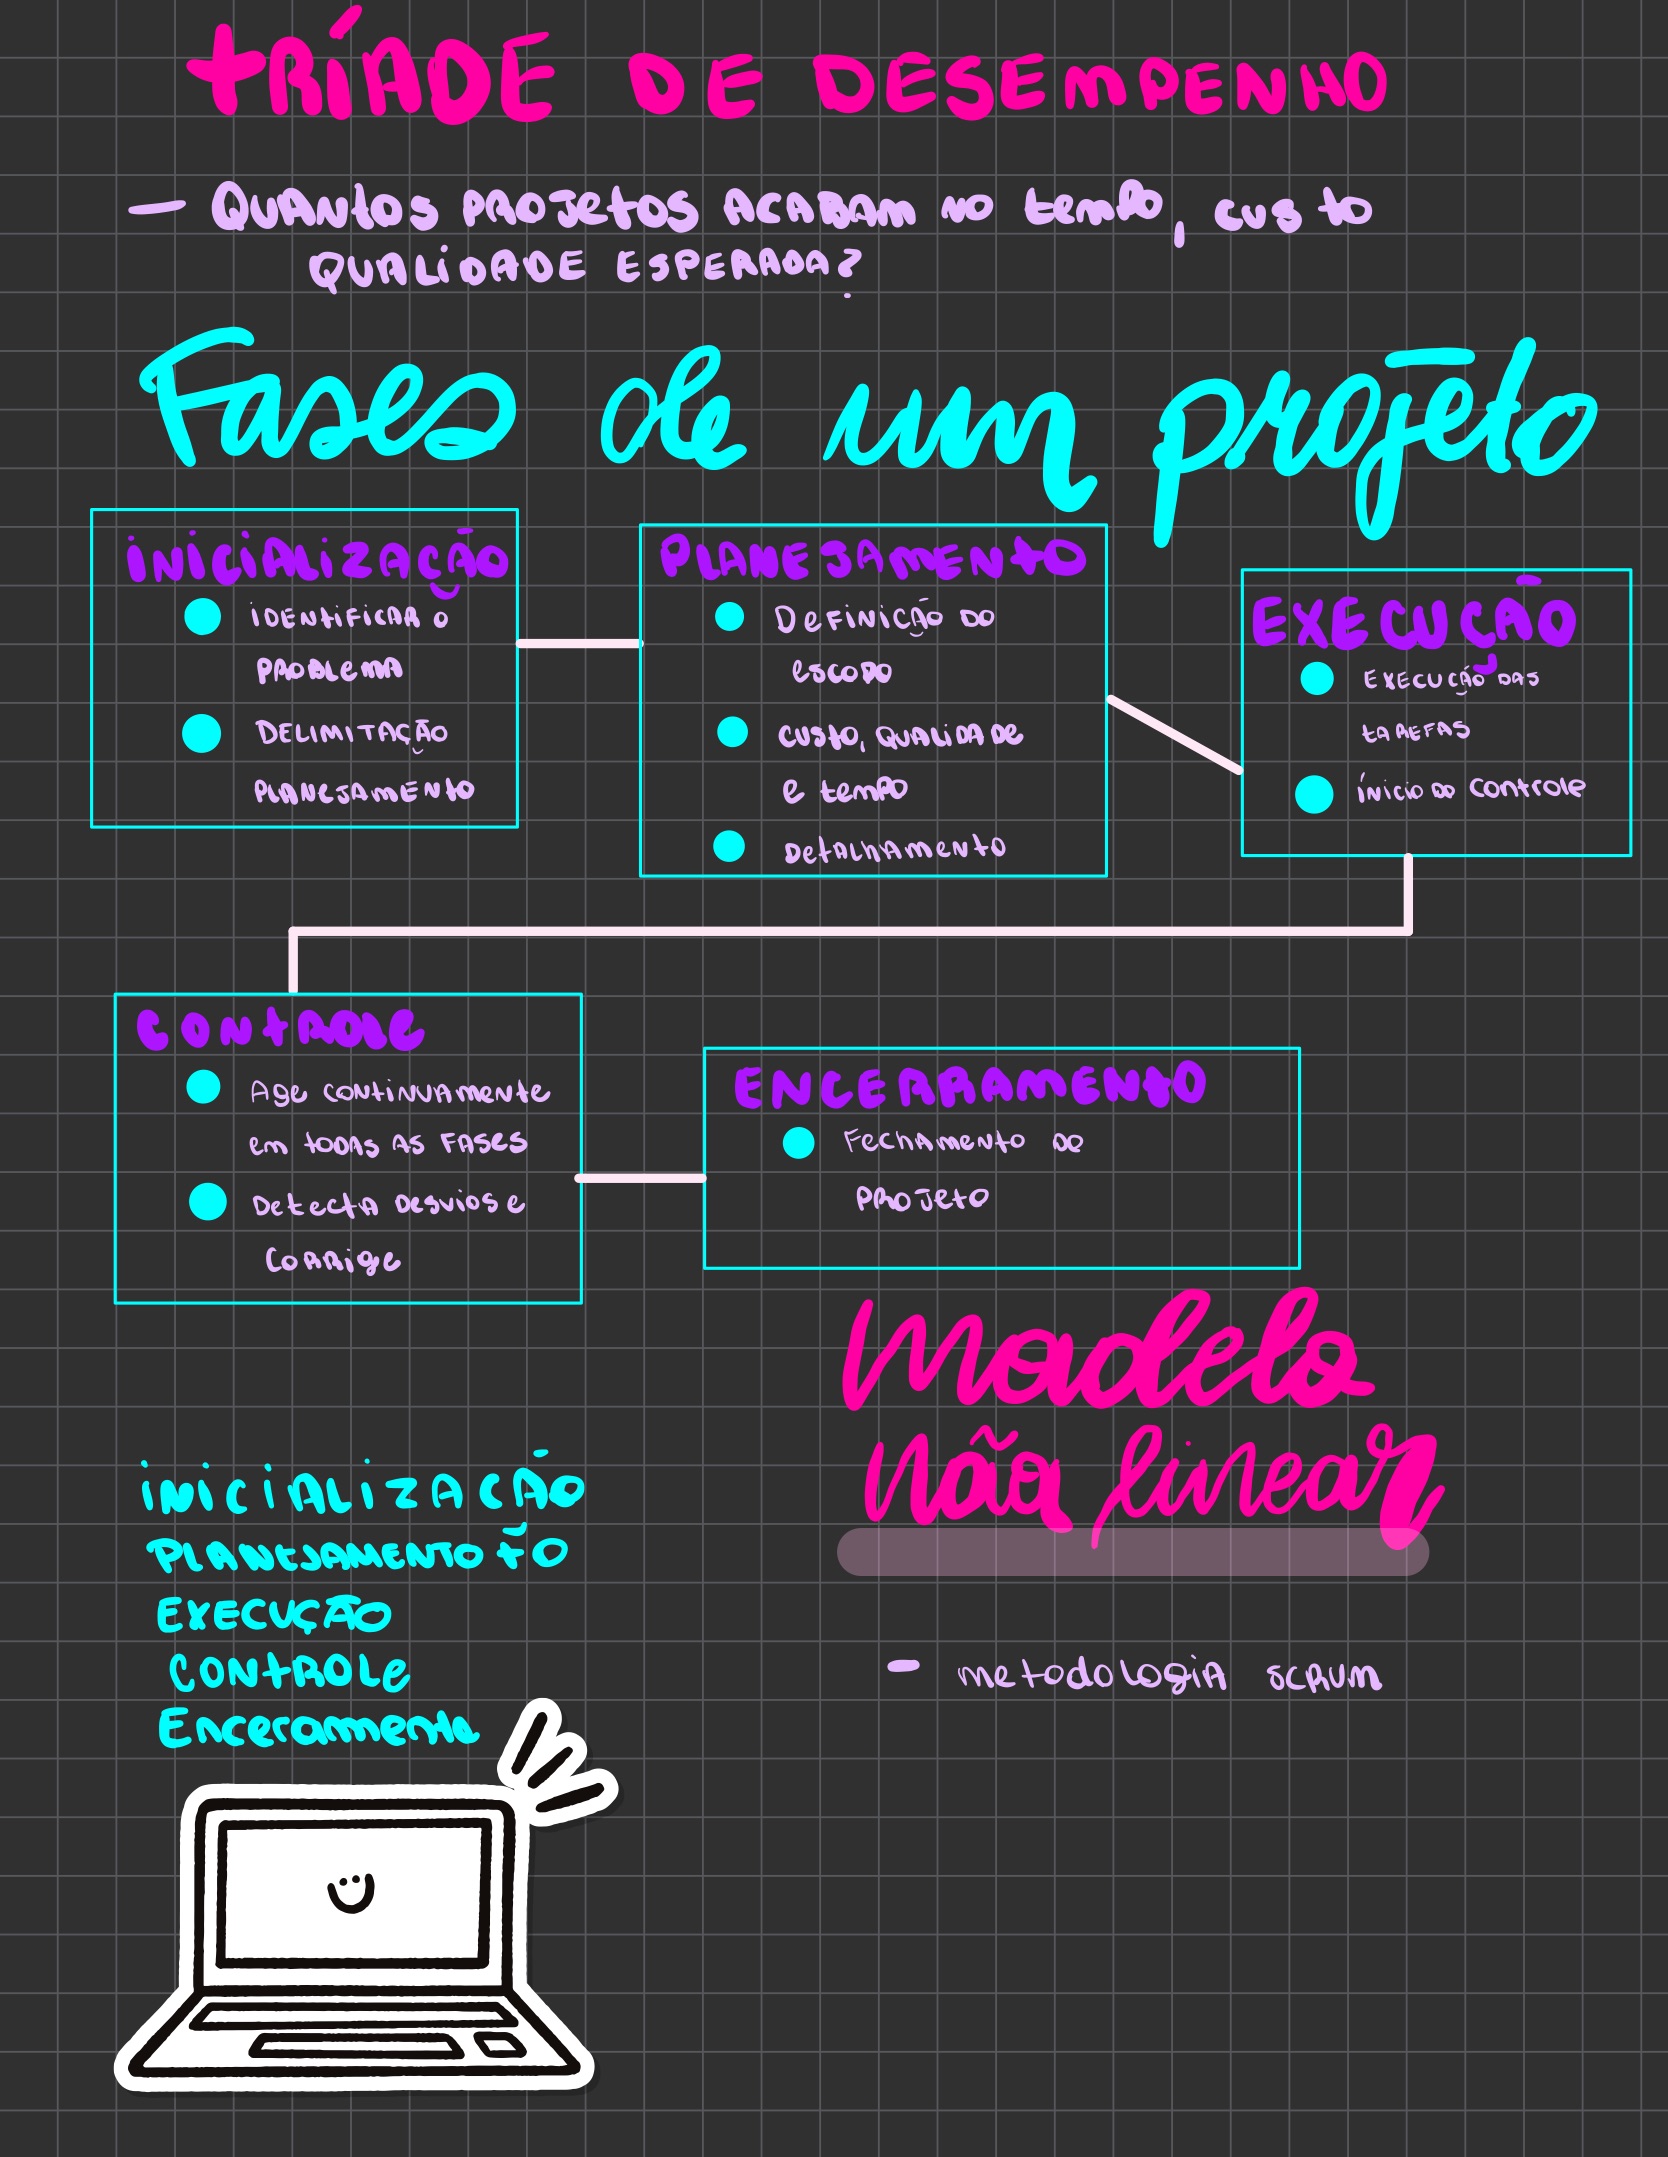 tRÍADE DE DESEMPENHO
— QUANtos PROJetos ACABAM NO tempo, custo
QUALIDADE ESPERADA?
Fases de um projeto
INICIALIZAÇÃO
IDENtIFICAR O
PROBLEMA
DELIMITAÇÃO
PLANEJAMENTO
PLANEJAMENtO
DeFINIÇÃO DO
escopo
custo, QUALIDADE
e tempo
DetALhAmeNtO
EXECUÇÃO
EXECUÇÃO DAS
tAREFAS
ÍNICIO DO CONtROle
CONtROle
Age CONtINUAmeNte
em tODAS AS FASES
Detecta DesviOS e
CORRIge
ENCERRAMENtO
FeChAmeNtO DO
PROJetO
modelo
não linear
INICIALIZAÇÃO
PLANEJAMENTO tO
EXECUÇÃO
CONtROLe
Enceramento
- metodologiA SCRUM